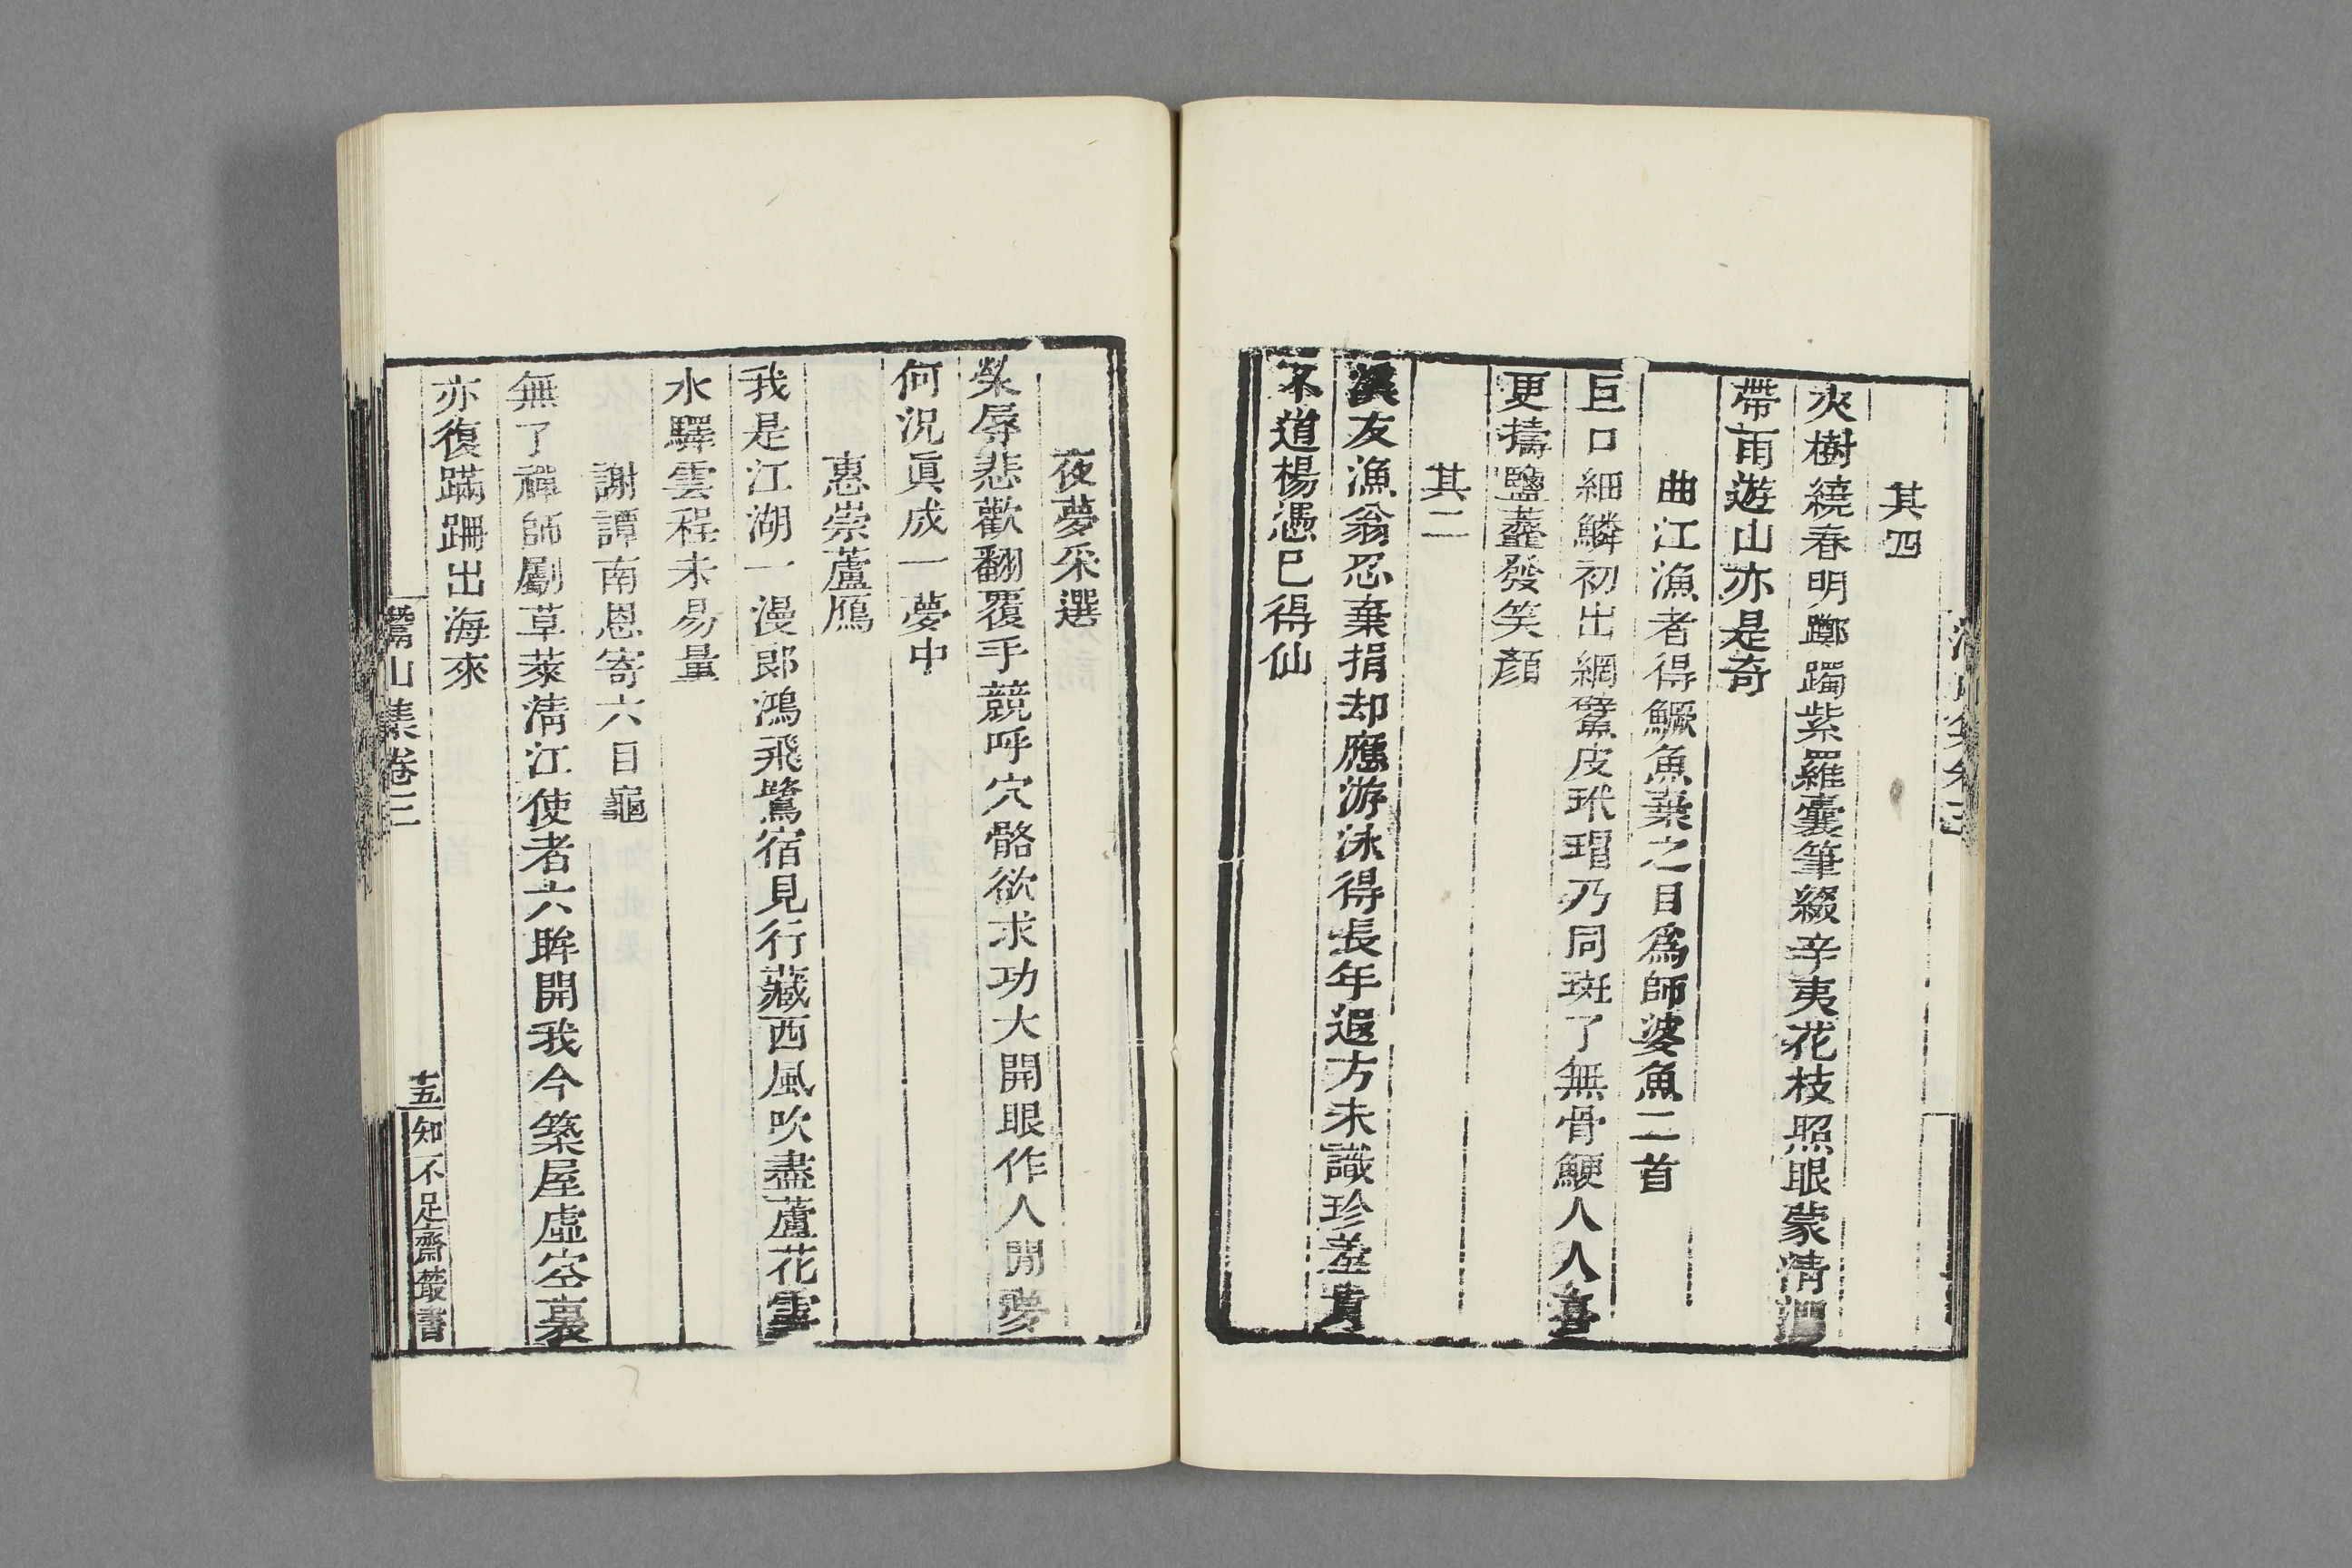 其四
夾樹繞春明躑躅紫羅囊筆綴辛夷花枝照眼蒙情
帶雨遊山亦是奇
曲江漁者得鱖魚棄之目爲師婆魚二首
巨口細鱗初出網鱟皮玳瑁乃同斑了無骨鯁人人喜
更擣鹽虀發笑顏
其二
溪友漁翁忍棄捐却應游泳得長年遐方未識珍羞貴
不道楊憑已得仙
夜夢采選
榮辱悲歡翻覆手競呼穴骼欲求功大開眼作人閒夢
何況眞成一夢中
惠崇蘆鴈
我是江湖一漫郞鴻飛鷺宿見行藏西風吹盡蘆花雪
水驛雲程未易量
謝譚南恩寄六目龜
無了禪師劚草萊淸江使者六眸開我今築屋虛空裏
亦復蹣跚出海來
灊山集卷三
十五
知不足齋叢書